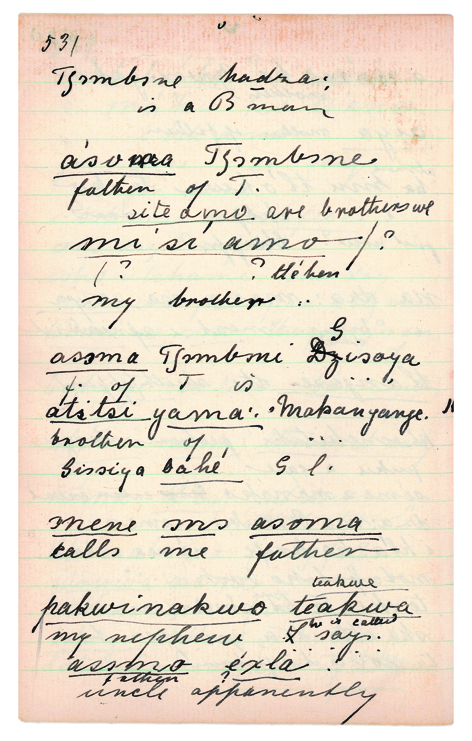 531
Tʒɜmbɜne hadza:
is a B man
ásoma Tʒɜmbɜne
father of T.
site amo are brothers we
mi si amo / ?
( ? ? tléhen
my brother
G
asɜma Tʒɜmbɜni Dʒisoya
f. of T is
átitsi yama: Makanyange.
brother of
Gissiya bahé G l.
mene sɜs asoma
calls me father
teakwe
pakwinakwo teakwa
he is called
my nephew says.
assmo éxla ?
father ?
uncle apparently